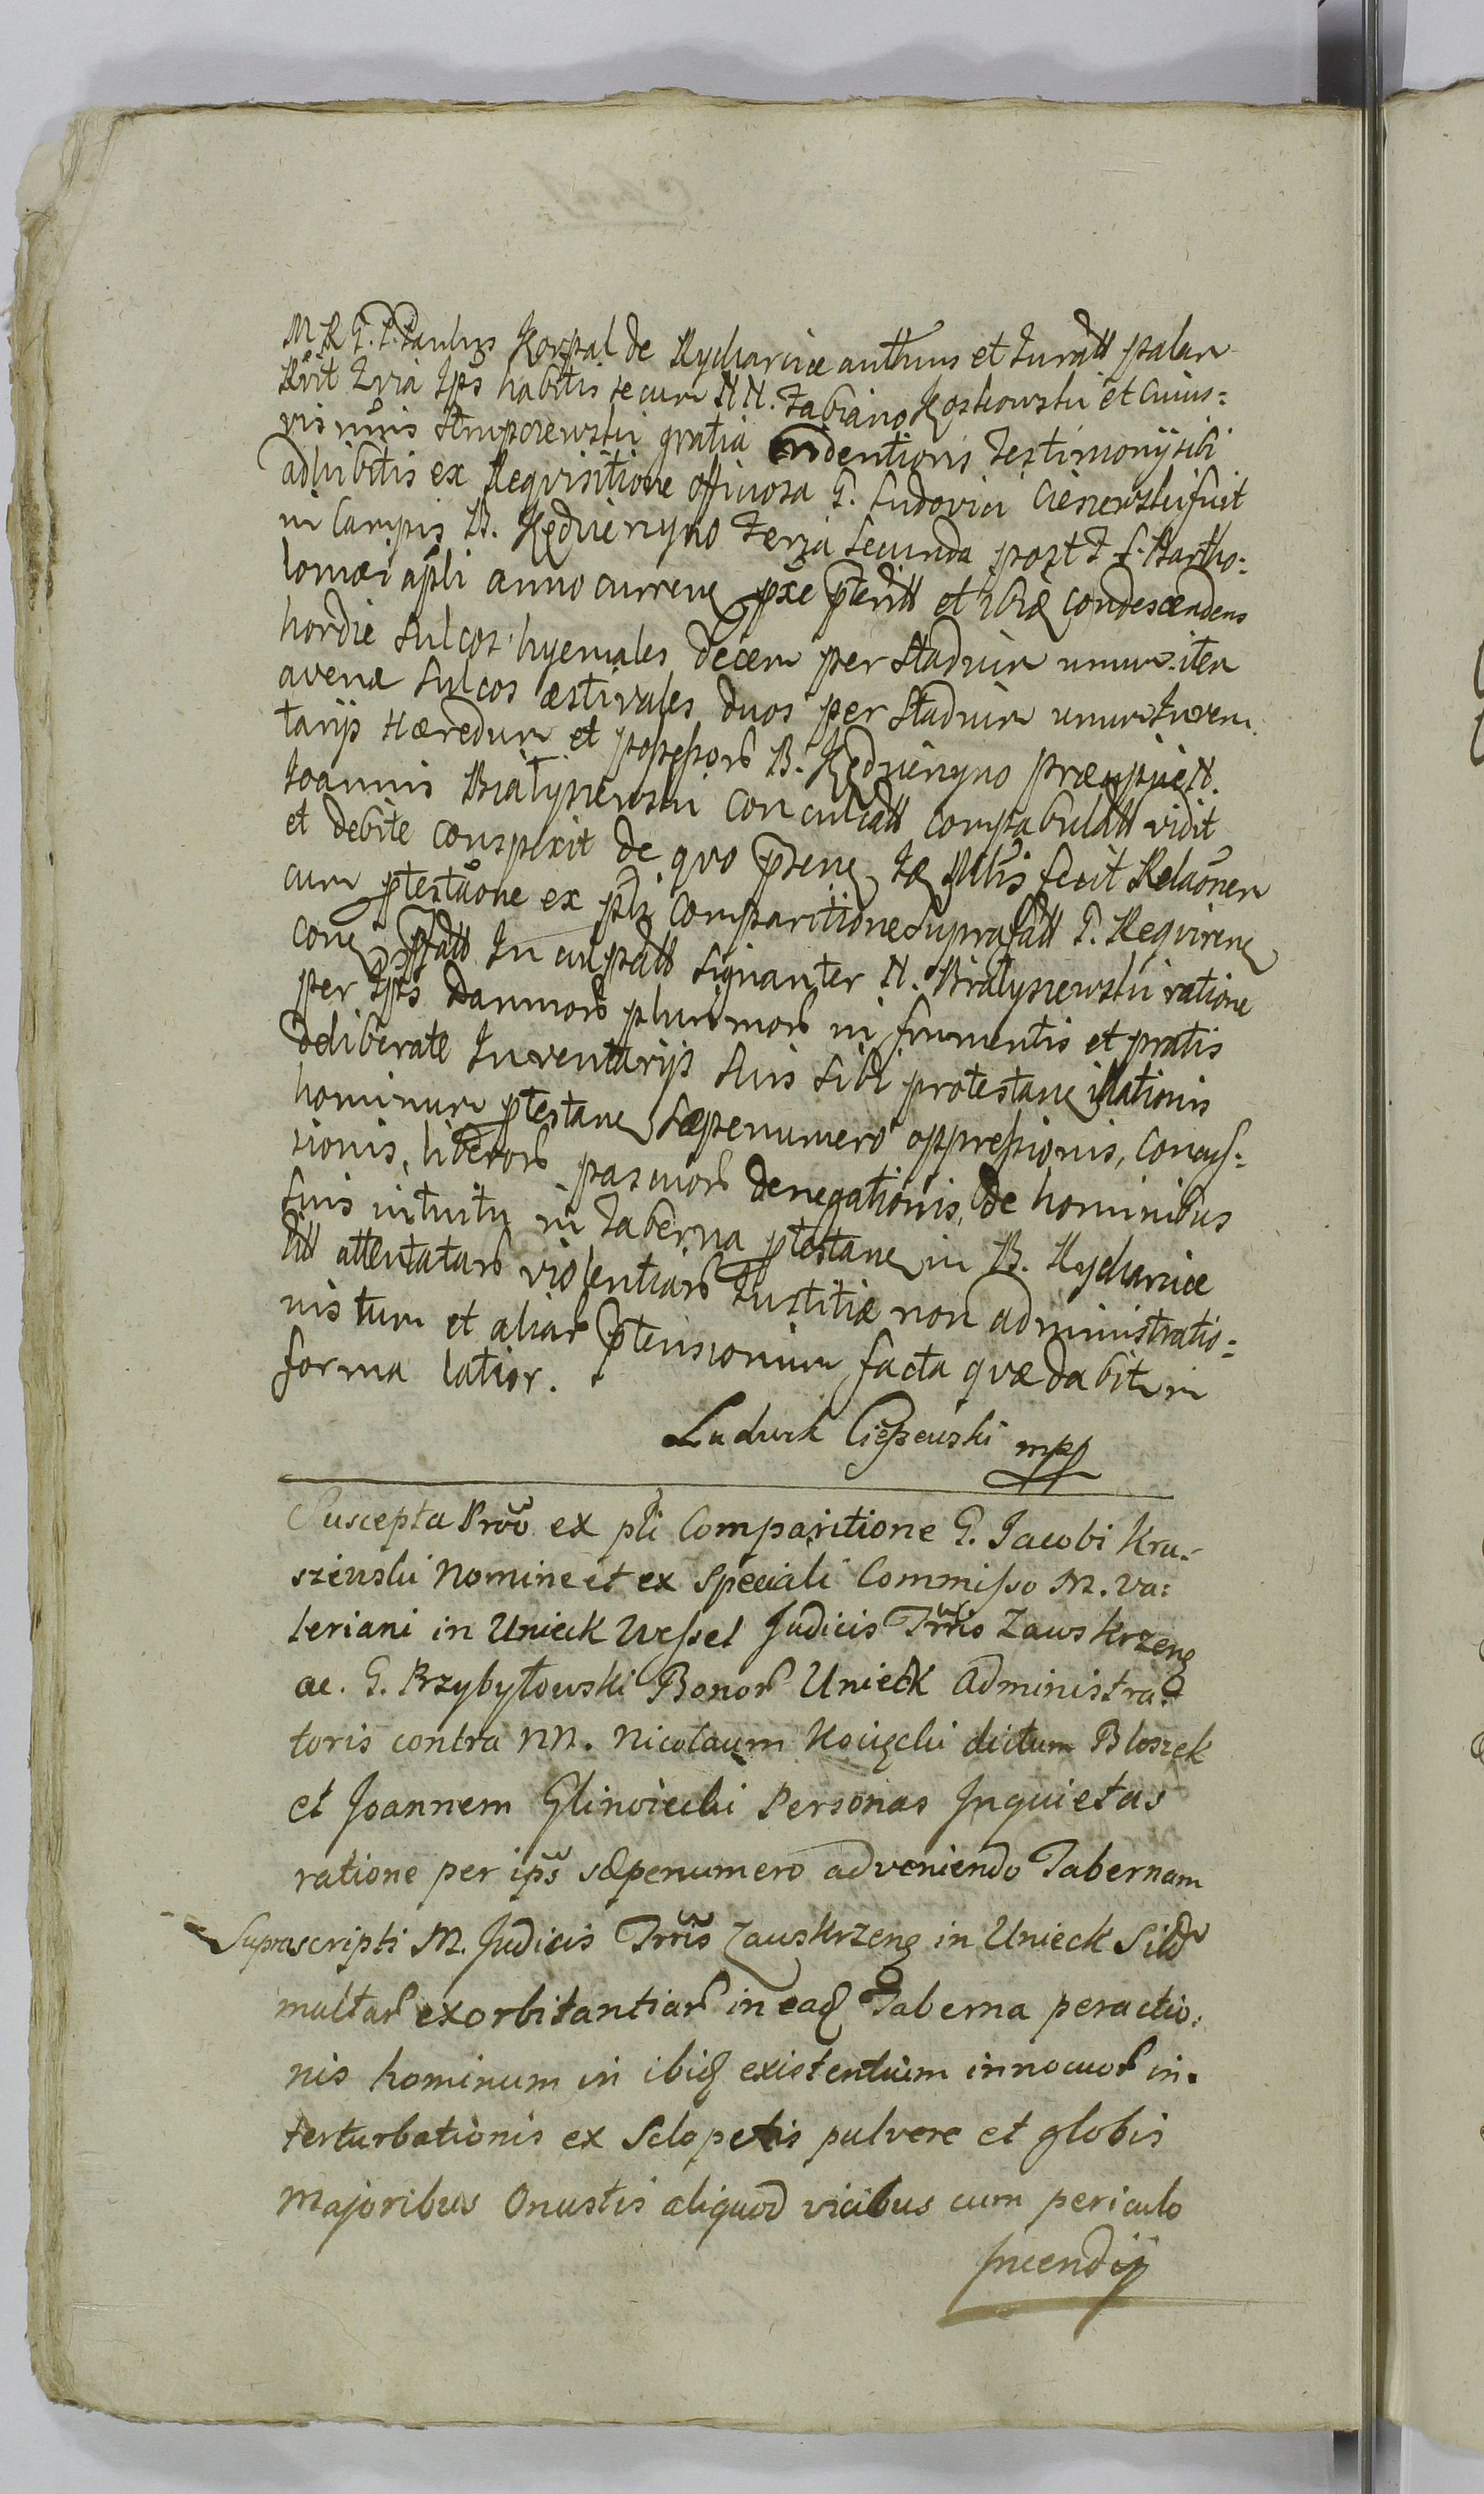 M R G. P. Paulus Kospal de Rycharcice autthus et Juratt palam
hibitis secum NN. Fabiano Koskowski et Cuius=
gratia evidentioris Testimonij sibi
adhibitis ex Requisitione officiosa G. Ludovici Cieszewski fuit
in Campis B. Kędzierzyno Feria Secunda post F. S. Bartho=
lomæi apli anno curren pxe pteritt et ibiq condescendens
hordie sulcos hyemales decem per stadium unum item
avenæ Sulcos æstivales duos per stadium unum Inven.
tarijs Hæredum et possessor B. Kędzierzyno præcipue N.
Joannis Białyszewski conculcatt compabulatt vidit
et debite conspexit de quo fecit Relaonem
cum ptestaone ex pli comparitione suprafatt G. Requiren
con Inculpatt signanter N. Białyszewski ratione
per Ips Damnor plurimor in frumentis et pratis
deliberate Inventarijs suis sibi protestan illationis
hominum ptestan sæpenumero oppressionis, concus=
sionis, liberor pascuor denegationis, de hominibus
suis intuitu in Taberna ptestan in B. Rycharcice
attentatar violentiar Justitiæ non administratio=
nis tum et aliar ptensionum facta quæ dabitur in
forma latior.
Ludwik Cieszewski mpp
Suscepta Prõõ ex pli Comparitione G. Jacobi Kru=
szewski Nomine et ex Speciali Commisso M. Va=
leriani in Unieck Wessel Judicis Trris Zawskrzen
ac. G. Przybyłowski Bonor Unieck Administra=
toris contra NN. Nicolaum Kocięcki dictum Bloszek
et Joannem Glinoiecki Personas Inquietas
ratione per ips sæpenumero adveniendo Tabernam
Suprascripti M. Judicis Trris Zawskrzen in Unieck Sitt
multar exorbitantiar in eaq Taberna peractio=
nis hominum in ibiq existentium innocuor in=
terturbationis ex Sclopetis pulvere et globis
Majoribus Onustis aliquod vicibus cum periculo
Incendij